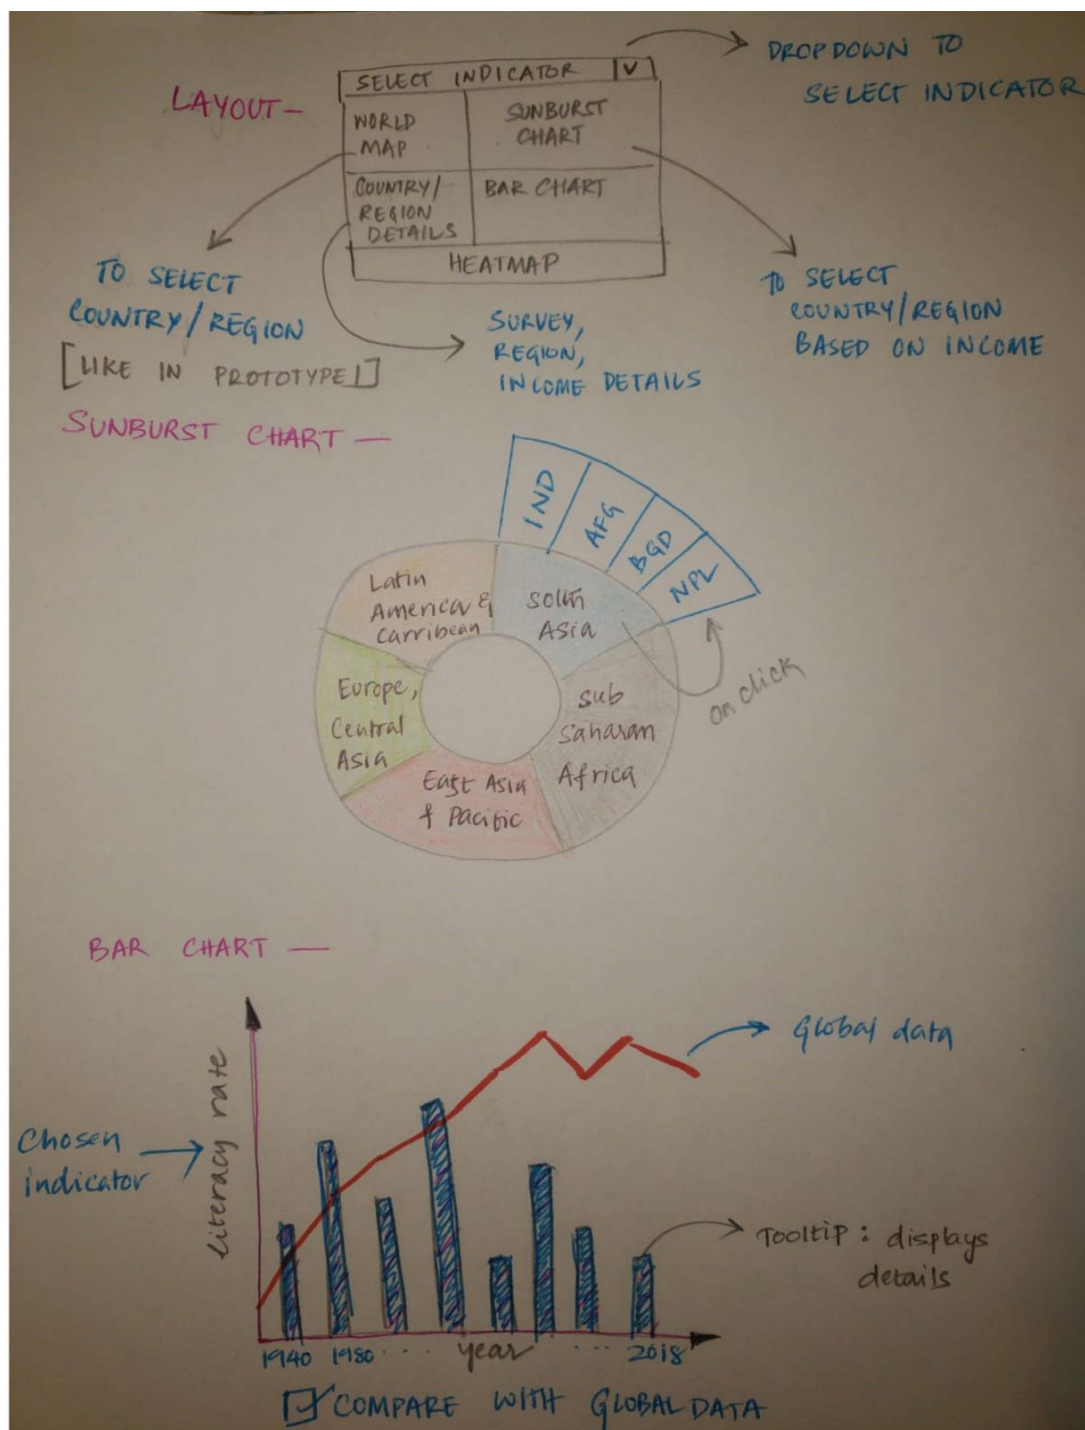 LAYOUT -
SELECT INDICATOR V
DROPDOWN TO
SELECT INDICATOR
WORLD
MAP
SUNBURST
CHART
COUNTRY/
REGION
DETAILS
BAR CHART
HEATMAP
TO SELECT
COUNTRY/REGION
[LIKE IN PROTOTYPE 1]
SURVEY,
REGION,
INCOME DETAILS
TO SELECT
COUNTRY/REGION
BASED ON INCOME
SUNBURST CHART -
IND
AFG
BGD
NPL
Latin
America &
Carribean
South
Asia
Europe,
Central
Asia
Sub
Saharan
Africa
East Asia
& Pacific
on click
BAR CHART -
Global data
Chosen
indicator
literacy rate
Tooltip : displays
details
1940 1980 . . . . year . . . 2018
COMPARE WITH GLOBAL DATA